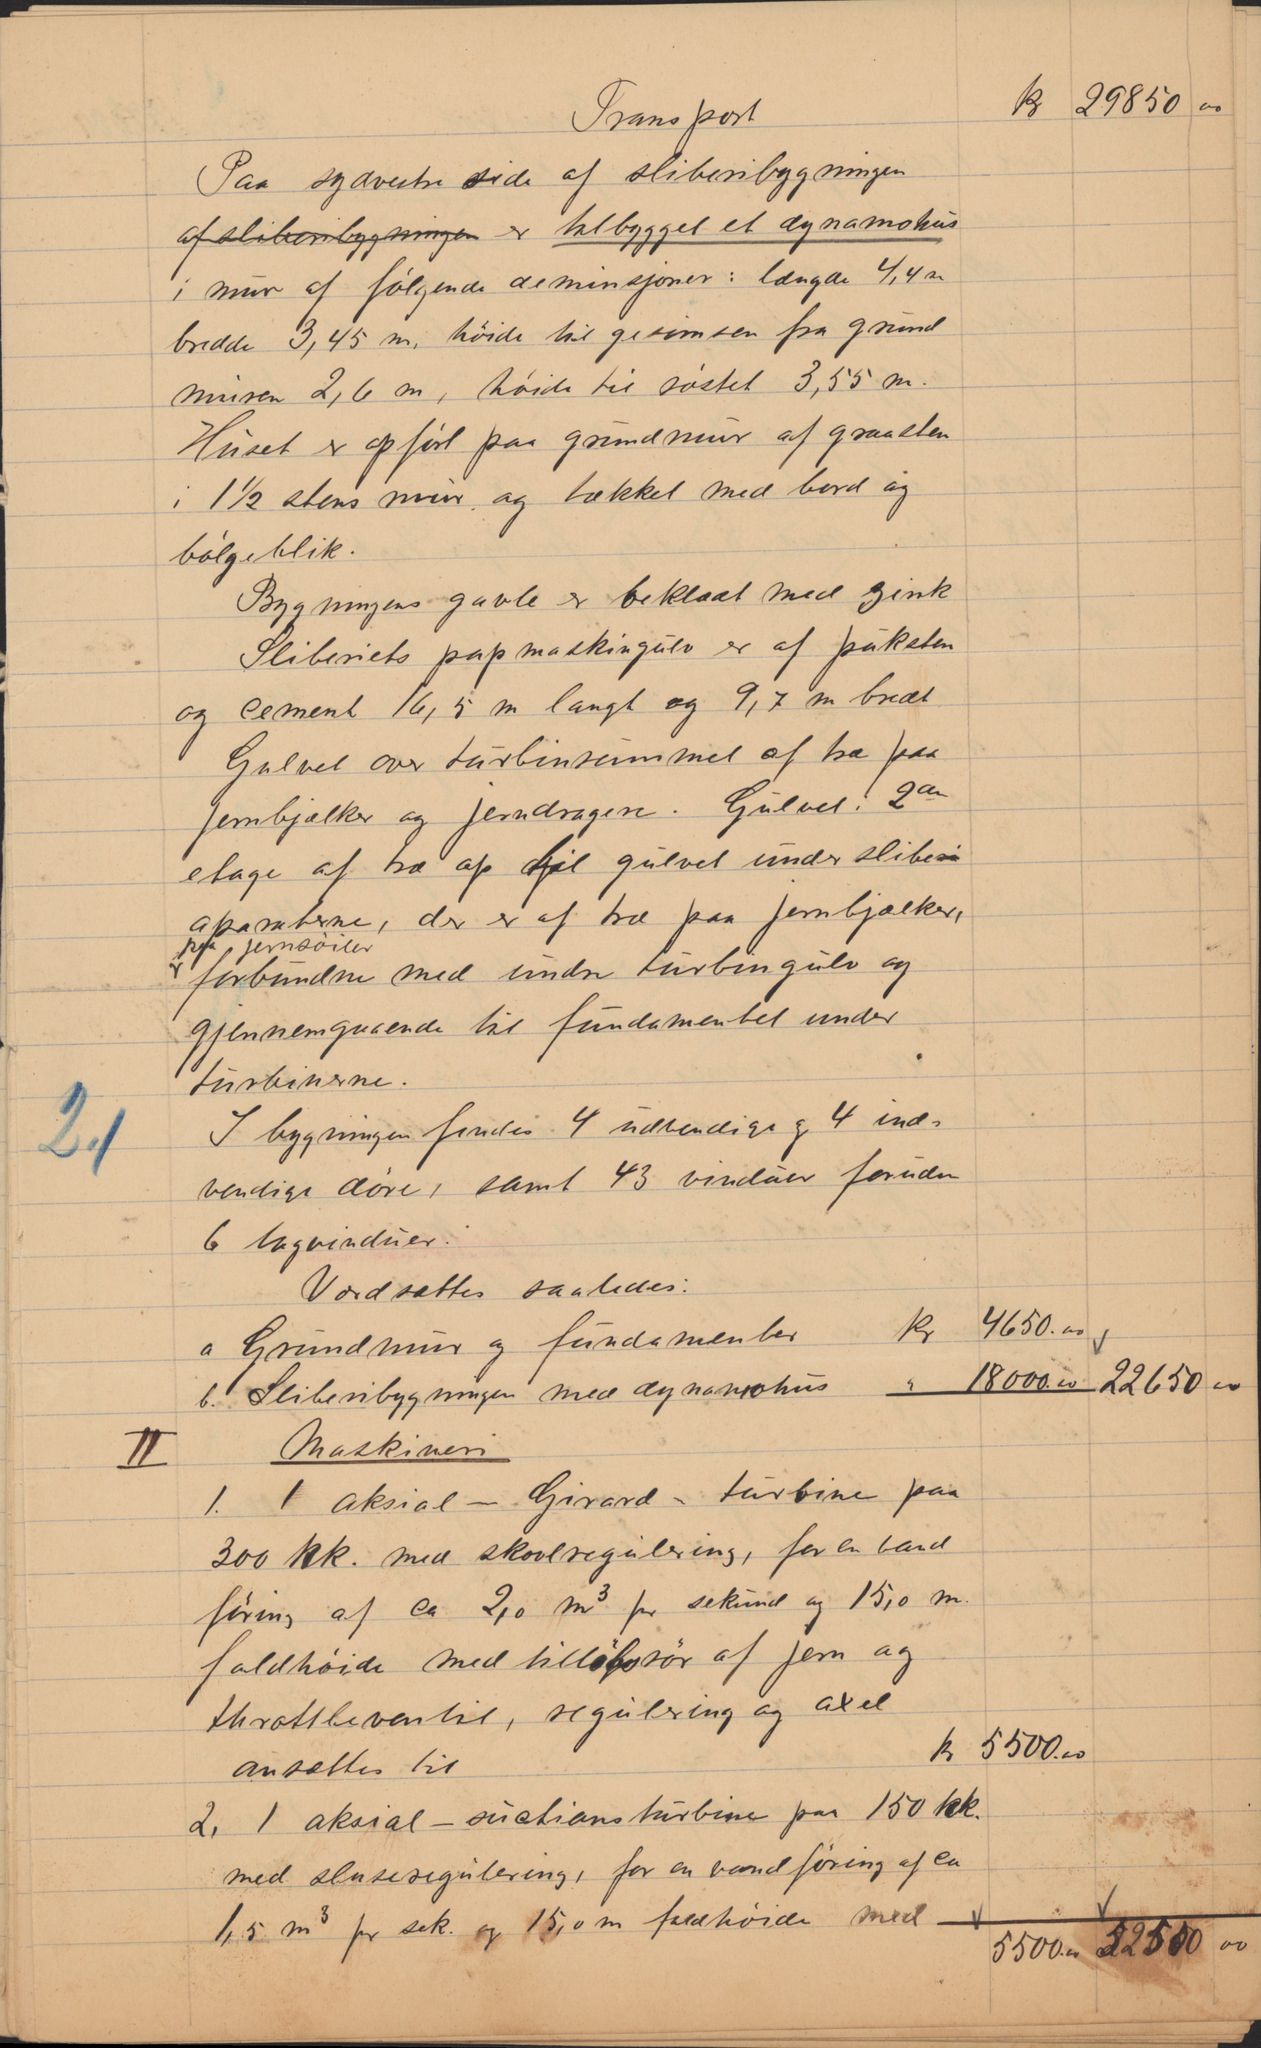 Transport kr 29850 00
Paa sydvestre side af sliberibygningen
af sliberibygningen er tilbygget et dynamohus
i mur af følgende deminsjoner: længde 4,4 m
bredde 3,45 m, høide til gesimsen fra grund
muren 2,6 m, høide til røstet 3,55 m.
Huset er opført paa grundmur af graasten
i 1½ stens mur, og tækket med bord og
bølgeblik.
Bygningens gavle er beklædt med zink
Sliberiets papmaskingulv er af puksten
og cement 16,5 m langt og 9,7 m bredt
Gulvet over turbinrummet af træ paa
jernbjælker og jerndragere. Gulvet i 2den
etage af træ op til gulvet under sliberi
aparaterne, der er af træ paa jernbjælker,
paa jernsøiler
er forbundne med undre turbingulv og
gjennemgaaende til fundamentet under
turbinerne.
2d
I bygningen findes 4 udvendige og 4 ind-
vendige døre, samt 43 vinduer foruden
6 tagvinduer.
Værdsættes saaledes:
a Grundmur og fundamenter kr 4650.00
b. Sliberibygningen med dynamohus " 18000.00 22650 00
II Maskineri
1. 1 aksial - Girard - turbine paa
300 hk. med skovlregulering, for en vand
føring af ca 2,0 m³ pr sekund og 15,0 m.
faldhøide med tilløbsrør af jern og
throttleventil, regulering og axel
ansættes til kr 5500.00
2. 1 aksial - suctionsturbine paa 150 hk.
med sluseregulering, for en vandføring af ca
1,5 m³ pr sek. og 15,0 m faldhøide med
5500.00 52500 00